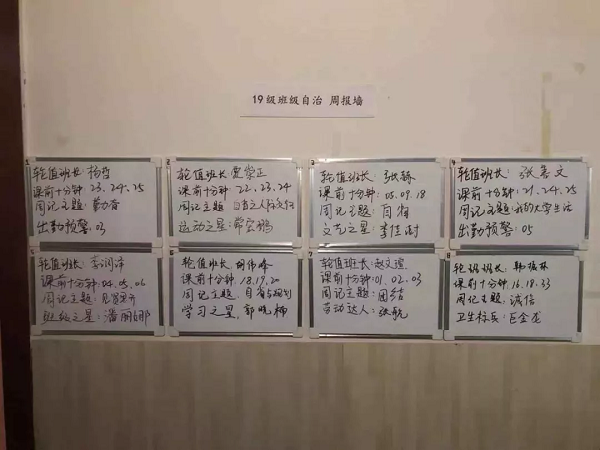 19级班级自治 周报墙
1
轮值班长 杨哲
课前十分钟:23.24.25
周记主题:勤奋
出勤预警:03
2
轮值班长 党崇正
课前十分钟:22.23.24
周记主题
运动之星:常宏鹏
3
轮值班长:
课前十分钟:05.09.18
周记主题:自省
文艺之星:李佳澍
4
轮值班长:张善文
课前十分钟:21.24.25
周记主题:我的大学生活
出勤预警:05
5
轮值班长 李润泽
课前十分钟:04.05.06
周记主题
班级之星:潘丽娜
6
轮值班长:胡伟峰
课前十分钟:18.19.20
周记主题:自省与规划
学习之星:郭晓楠
7
轮值班长:赵文煊
课前十分钟:01.02.03
周记主题:团结
劳动达人:张航
8
轮班班长:韩
课前十分钟:16.18.33
周记主题:诚信
卫生标兵:巨金龙